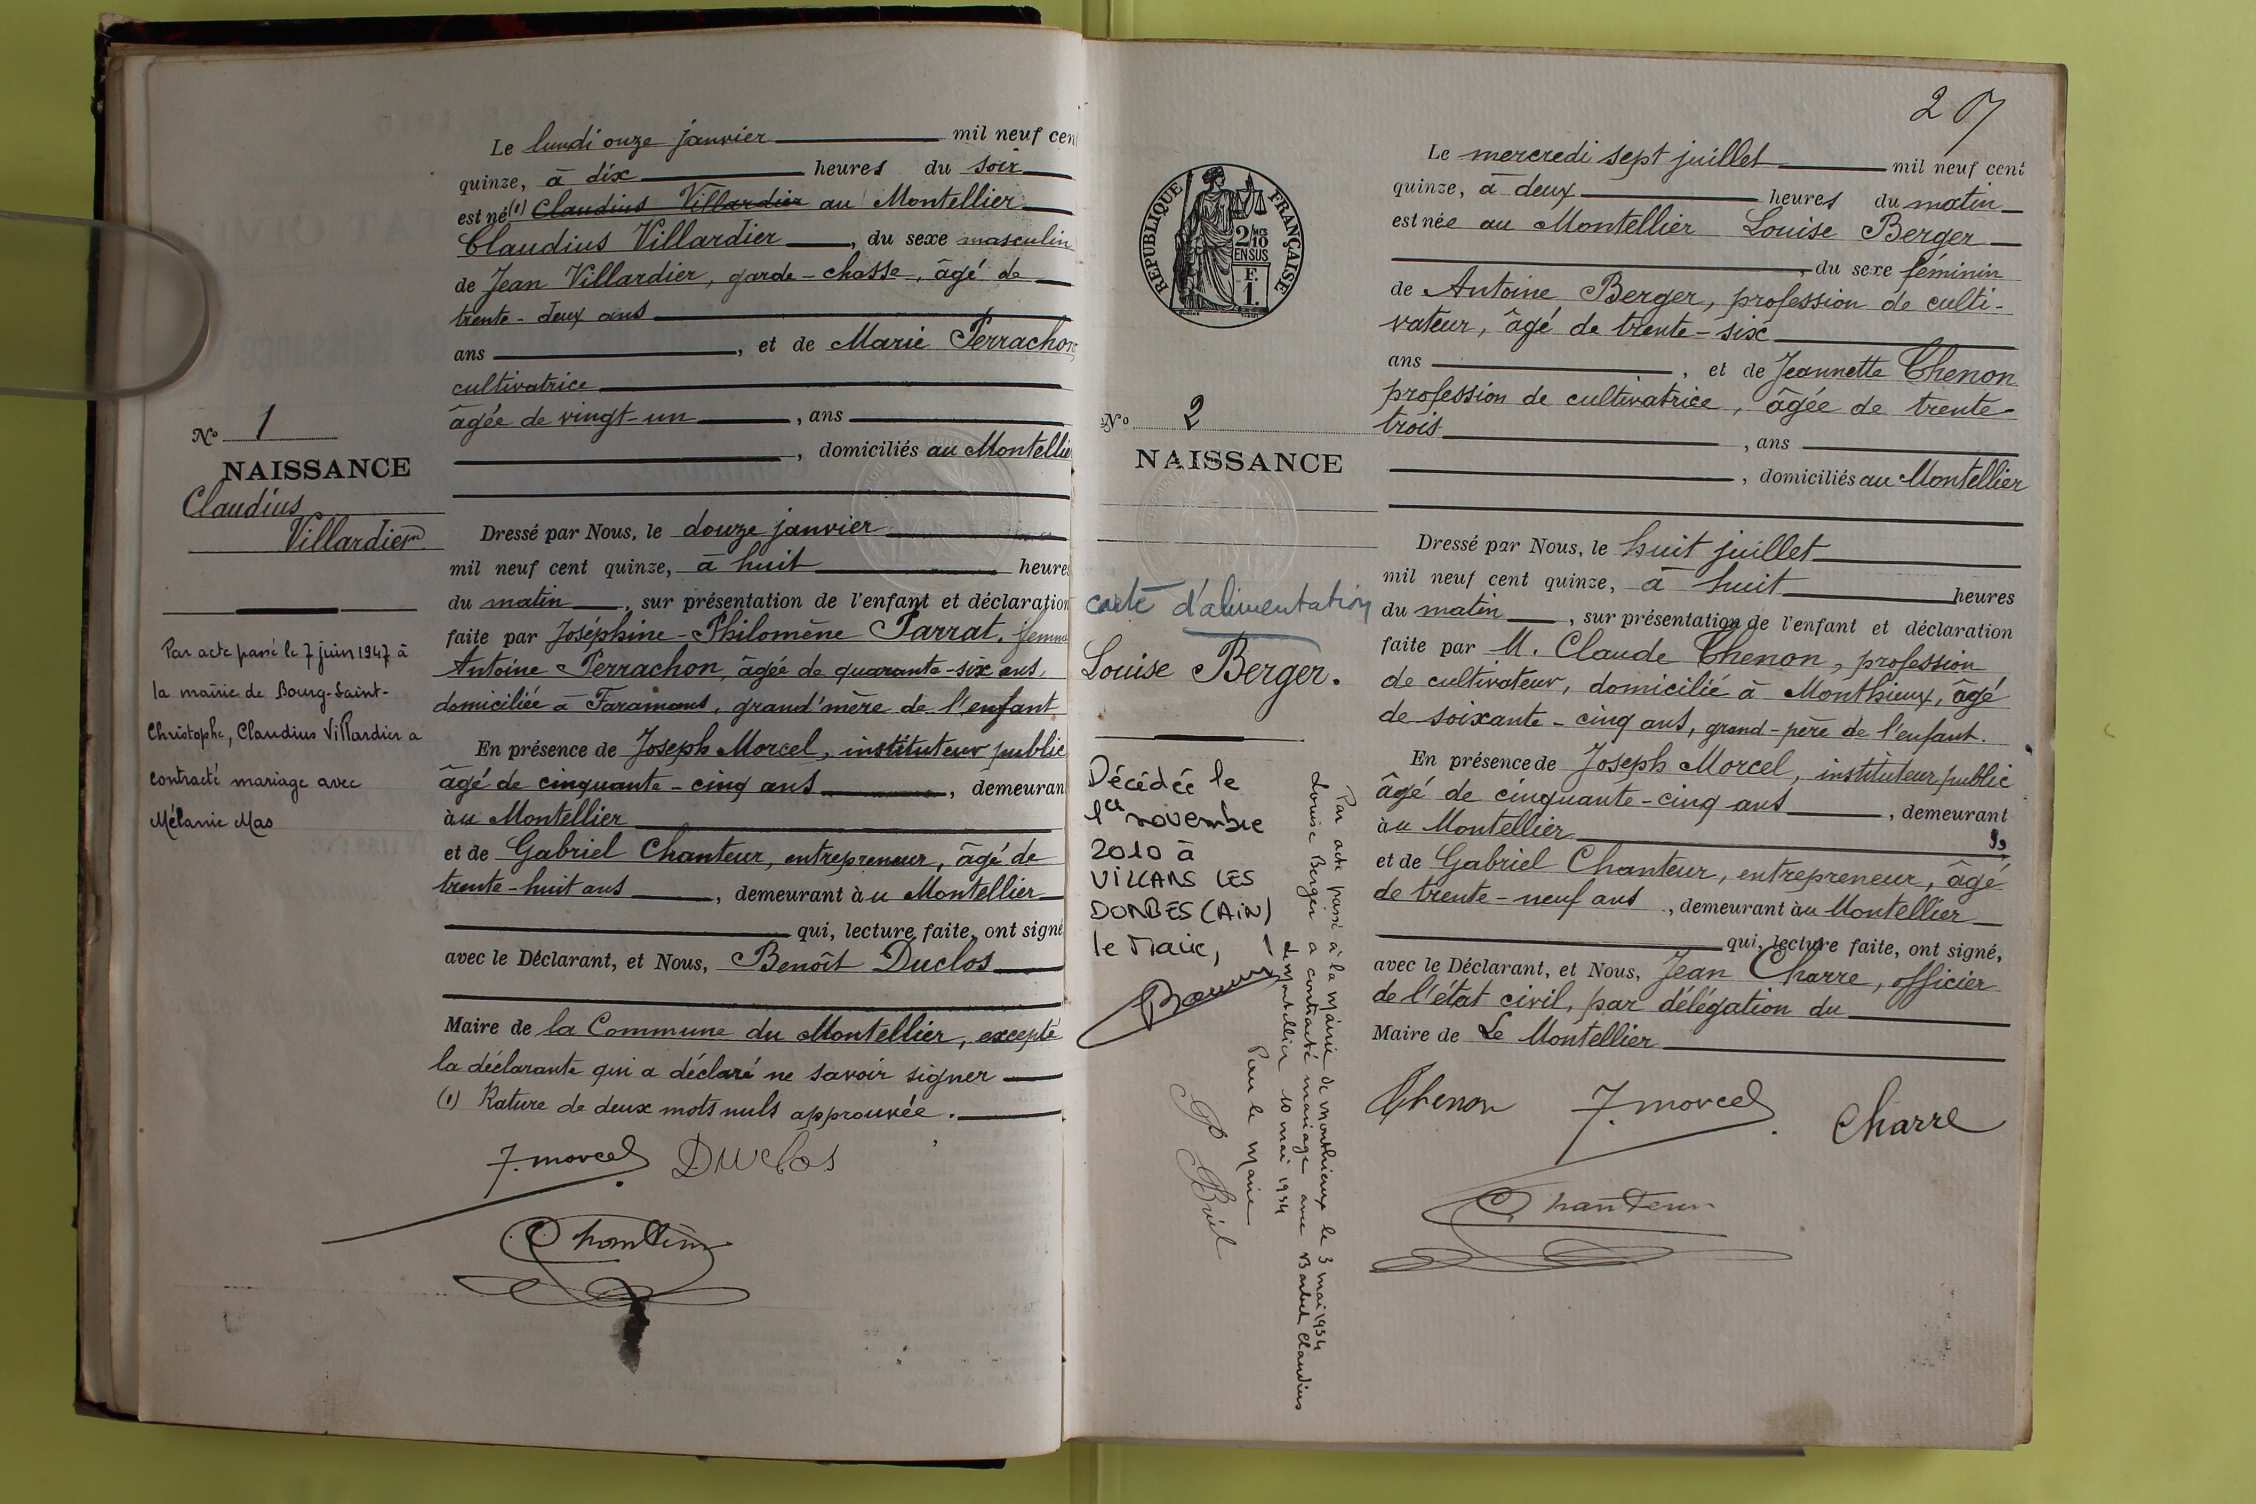 Le lundi onze janvier mil neuf cent
quinze, à dix heures du soir
est né (1) Claudius Villardier au Montellier
Claudius Villardier, du sexe masculin
de Jean Villardier, garde-chasse, âgé de
trente-deux ans
ans, et de Marie Perrachon,
cultivatrice
âgée de vingt-un, ans
, domiciliés au Montellier
No 1
NAISSANCE
Claudius
Villardier
Par acte passé le 7 juin 1947 à
la mairie de Bourg-Saint-
Christophe, Claudius Villardier a
contracté mariage avec
Mélanie Mas
Dressé par Nous, le douze janvier
mil neuf cent quinze, à huit heures
du matin, sur présentation de l'enfant et déclaration
faite par Joséphine-Philomène Parrat, femme
Antoine Perrachon, âgée de quarante-six ans,
domiciliée à Faramans, grand'mère de l'enfant
En présence de Joseph Morcel, instituteur public
âgé de cinquante-cinq ans, demeurant
àu Montellier
et de Gabriel Chanteur, entrepreneur, âgé de
trente-huit ans, demeurant àu Montellier
qui, lecture faite, ont signé
avec le Déclarant, et Nous, Benoît Duclos
Maire de la Commune du Montellier, excepté
la déclarante qui a déclaré ne savoir signer
(1) Rature de deux mots nuls approuvée.
J. Morcel Duclos
Chanteur
20
RÉPUBLIQUE FRANÇAISE
2/10
EN SUS
F.
1.
Le mercredi sept juillet mil neuf cent
quinze, à deux heures du matin
est née au Montellier Louise Berger
, du sexe féminin
de Antoine Berger, profession de culti-
vateur, âgé de trente-six
ans, et de Jeannette Chenon
profession de cultivatrice, âgée de trente-
trois, ans
, domiciliés au Montellier
No 2
NAISSANCE
carte d'alimentation
Louise Berger.
Décédée le
1er novembre
2010 à
VILLARS LES
DOMBES (AIN)
le Maire,
Par acte passé à la Mairie de Monthieux le 3 mai 1934
Louise Berger a contracté mariage avec Barbet Claudius
Le Montellier 10 mai 1934
Pour le Maire
Dressé par Nous, le huit juillet
mil neuf cent quinze, à huit heures
du matin, sur présentation de l'enfant et déclaration
faite par M. Claude Chenon, profession
de cultivateur, domicilié à Monthieux, âgé
de soixante-cinq ans, grand-père de l'enfant.
En présence de Joseph Morcel, instituteur public
âgé de cinquante-cinq ans, demeurant
àu Montellier
et de Gabriel Chanteur, entrepreneur, âgé
de trente-neuf ans, demeurant àu Montellier
qui, lecture faite, ont signé,
avec le Déclarant, et Nous, Jean Charre, officier
de l'état civil, par délégation du
Maire de Le Montellier
Chenon J. Morcel Charre
Chanteur